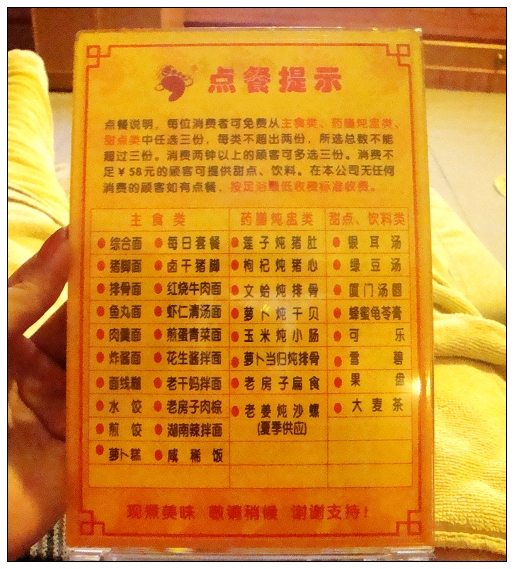 点餐提示
点餐说明，每位消费者可免费从主食类、药膳炖盅类、
甜点类中任选三份，每类不超出两份，所选总数不能
超过三份。消费两钟以上的顾客可多选三份。消费不
足￥58元的顾客可提供甜点、饮料。在本公司无任何
消费的顾客如有点餐，按足浴最低收费标准收费。
主食类 药膳炖盅类 甜点、饮料类
综合面 每日套餐 莲子炖猪肚 银耳汤
猪脚面 卤干猪脚 枸杞炖猪心 绿豆汤
排骨面 红烧牛肉面 文蛤炖排骨 厦门汤圆
鱼丸面 虾仁清汤面 萝卜炖干贝 蜂蜜龟苓膏
肉羹面 煎蛋青菜面 玉米炖小肠 可乐
炸酱面 花生酱拌面 萝卜当归炖排骨 雪碧
面线糊 老干妈拌面 老房子扁食 果盘
水饺 老房子肉粽 老姜炖沙螺 大麦茶
(夏季供应)
煎饺 湖南辣拌面
萝卜糕 咸稀饭
现煮美味 敬请稍候 谢谢支持！